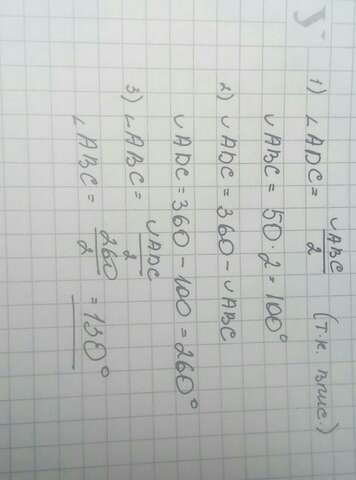 1) ∠ADC = ◡ABC/2 (т.к. впис.)
◡ABC = 50·2 = 100°
2) ◡ADC = 360 - ◡ABC
◡ADC = 360 - 100 = 260°
3) ∠ABC = ◡ADC/2
∠ABC = 260/2 = 130°